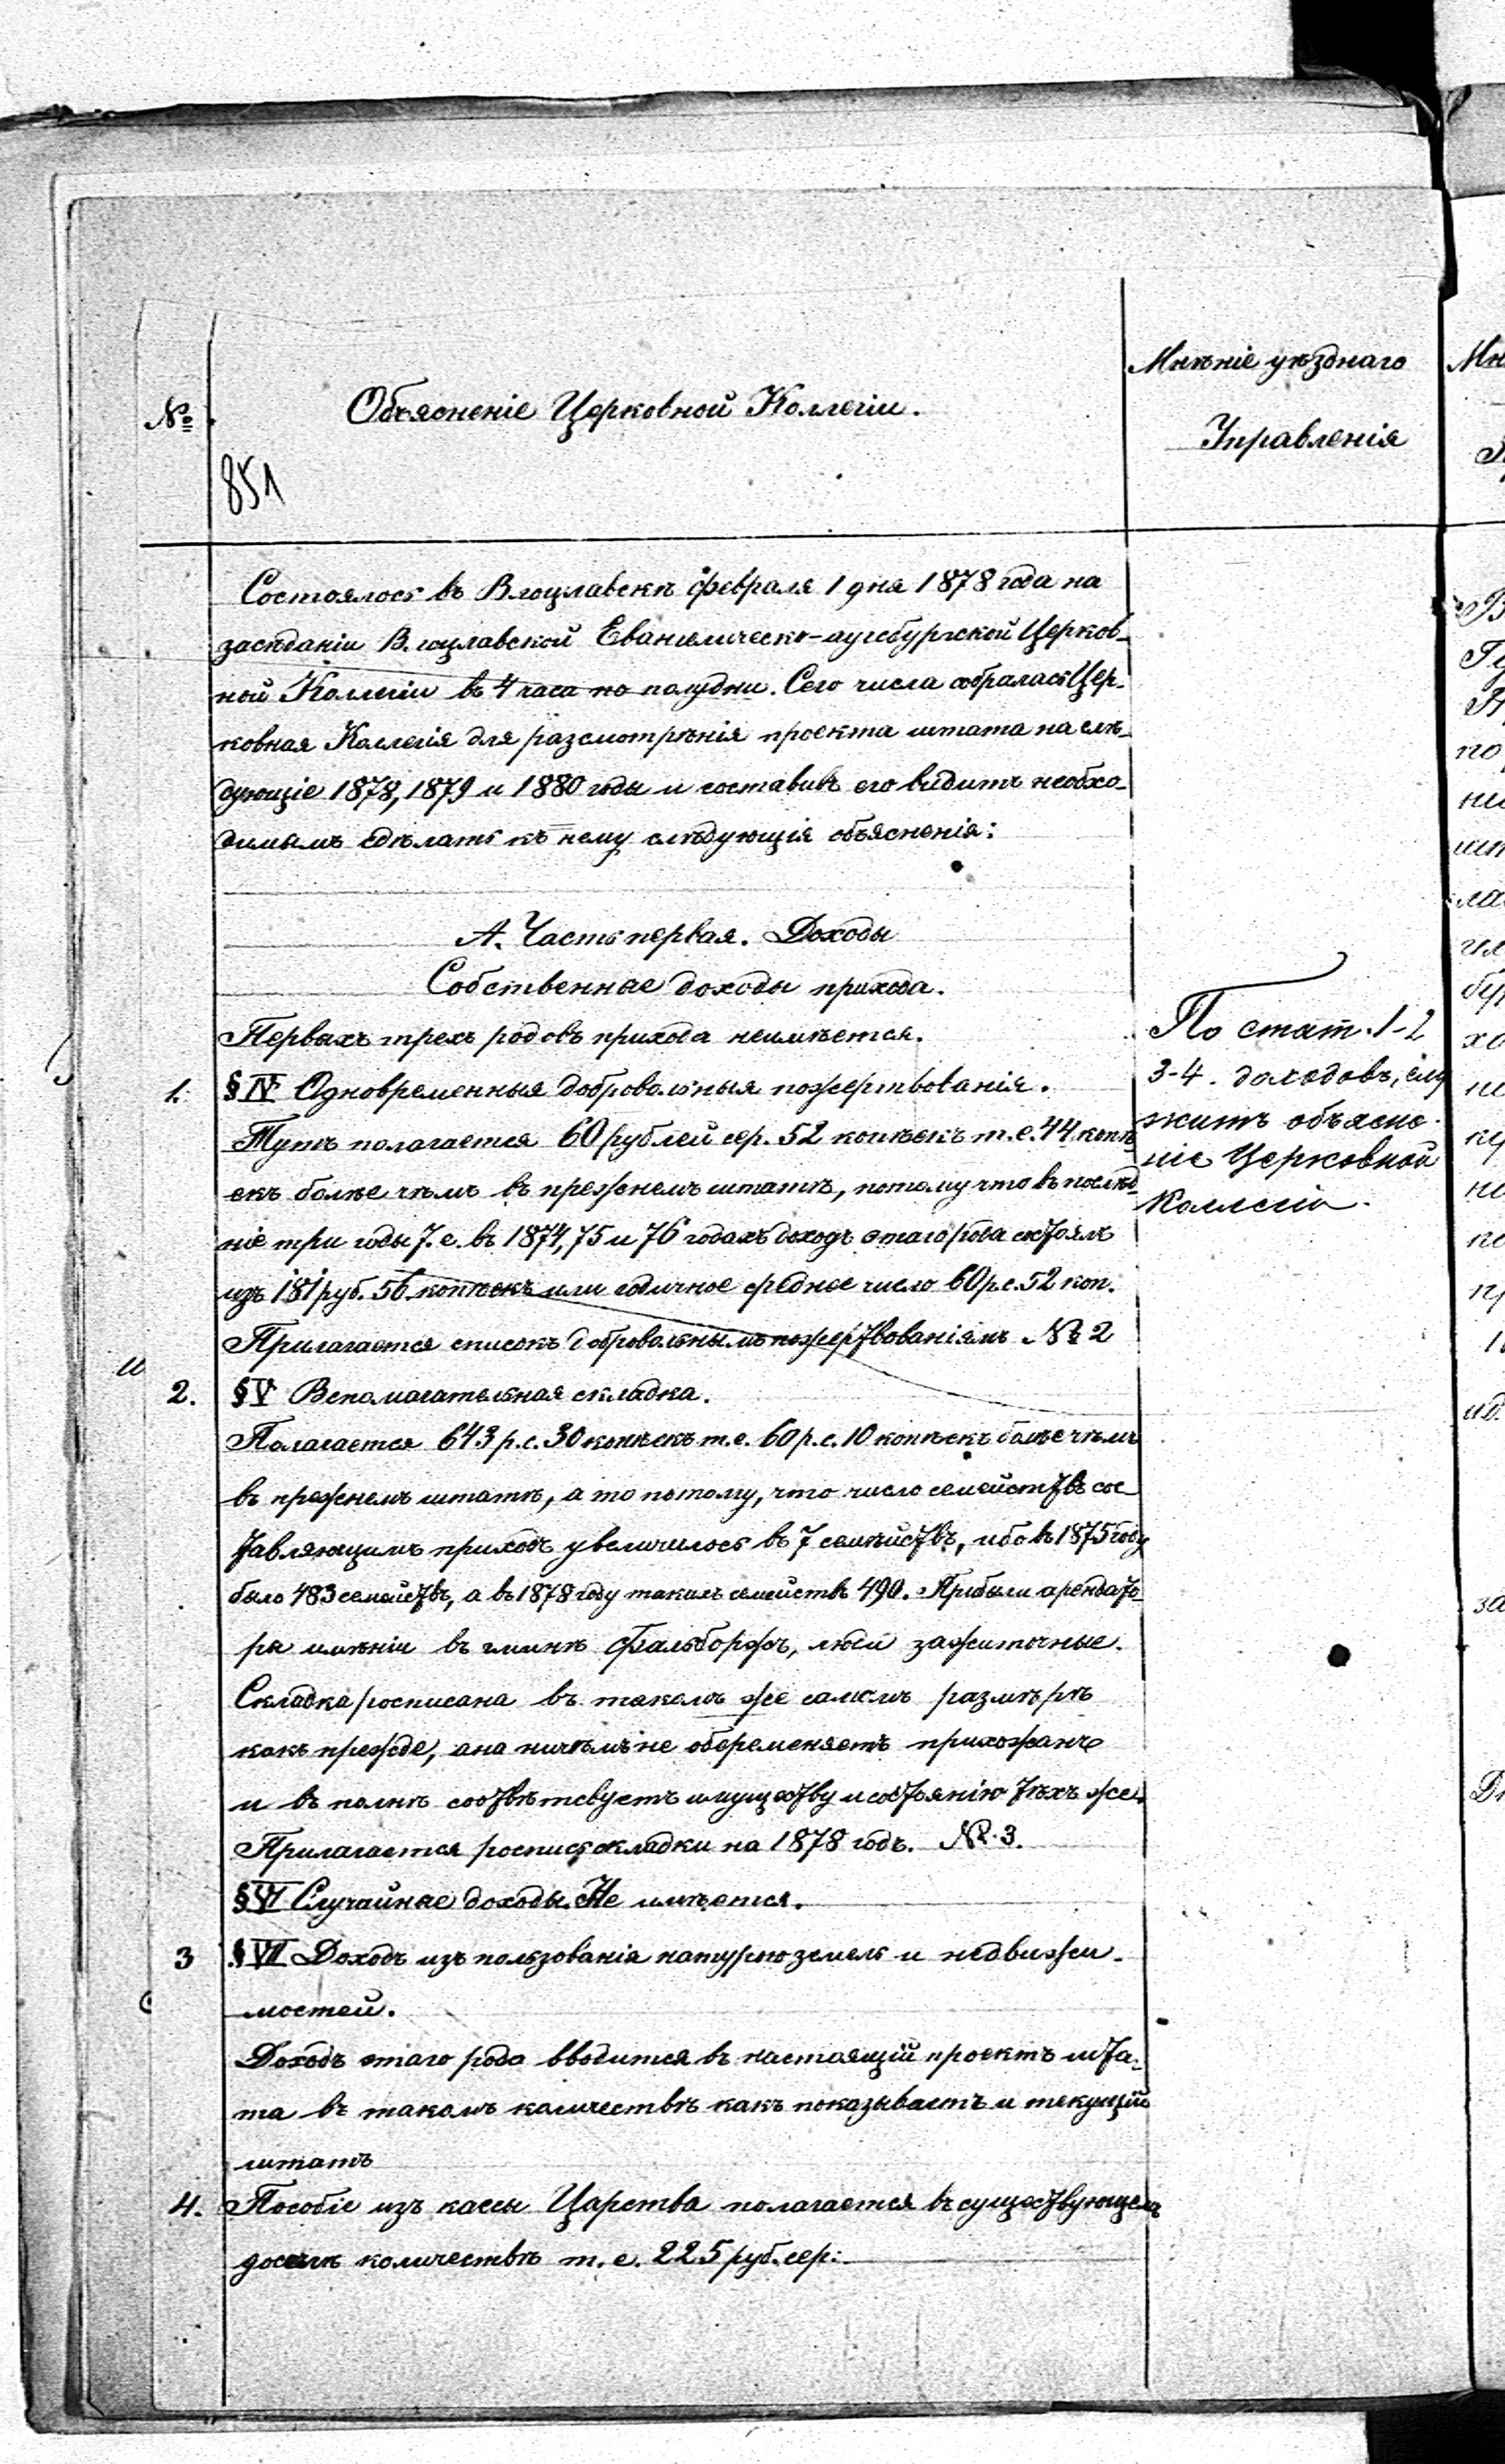 №
Объясненіе Церковной Коллегіи.
Мнѣніе уѣзднаго
Управленія
851
Состоялось въ Влоцлавскѣ февраля 1 дня 1878 года на
засѣданіи Влоцлавской Евангелическо-аугсбургской Церков-
ной Коллегіи въ 4 часа по полудни. Сего числа собралась Цер-
ковная Коллегія для разсмотрѣнія проекта штата на слѣ-
дующіе 1878, 1879 и 1880 годы и составивъ его видитъ необхо-
димымъ сдѣлать къ нему слѣдующія объясненія:
А. Часть первая. Доходы
Собственные доходы прихода.
Первыхъ трехъ родовъ прихода неимѣется.
1. § IV Одновременныя добровольныя пожертвованія.
Тутъ полагается 60 рублей сер. 52 копѣекъ т.е. 44 копѣ
екъ болѣе чѣмъ въ прежнемъ штатѣ, потому что въ послѣд
ніе три годы т.е. въ 1874, 75 и 76 годахъ доходъ этаго рода состоялъ
изъ 181 руб. 56 копѣекъ или годичное среднее число 60 р.с. 52 коп.
Прилагается списокъ добровольнымъ пожертвованіямъ № 2
2. § V Вспомагательная складка.
Полагается 643 р.с. 30 копѣекъ т.е. 60 р.с. 10 копѣекъ болѣе чѣмъ
въ прежнемъ штатѣ, а то потому, что число семействъ сос-
тавляющимъ приходъ увеличилось въ 7 семѣйствъ, ибо въ 1875 году
было 483 семействъ, а въ 1878 году такихъ семействъ 490. Прибыли арендато-
ры имѣніи въ гминѣ Фальборжъ, люди зажиточные.
Складка росписана въ такомъ же самомъ размѣрѣ
какъ прежде, она ничѣмъ не обременяетъ прихожанъ
и въ полнѣ соотвѣтсвуетъ имуществу и состоянію тѣхъ же.
Прилагается роспись складки на 1878 годъ. № 3.
§ VI Случайные доходы. Не имѣется.
3 § VII Доходъ изъ пользованія натурою земель и недвижи-
мостей.
Доходъ этаго рода вводится въ настоящій проектъ шта-
та въ такомъ количествѣ какъ показываетъ и текущій
штатъ
4. Пособіе изъ кассы Царства полагается въ существующемъ
досемѣ количествѣ т.е. 225 руб. сер:
По стат. 1-2
3-4. доходовъ, слу
житъ объясне-
ніе Церковной
Коллегіи.